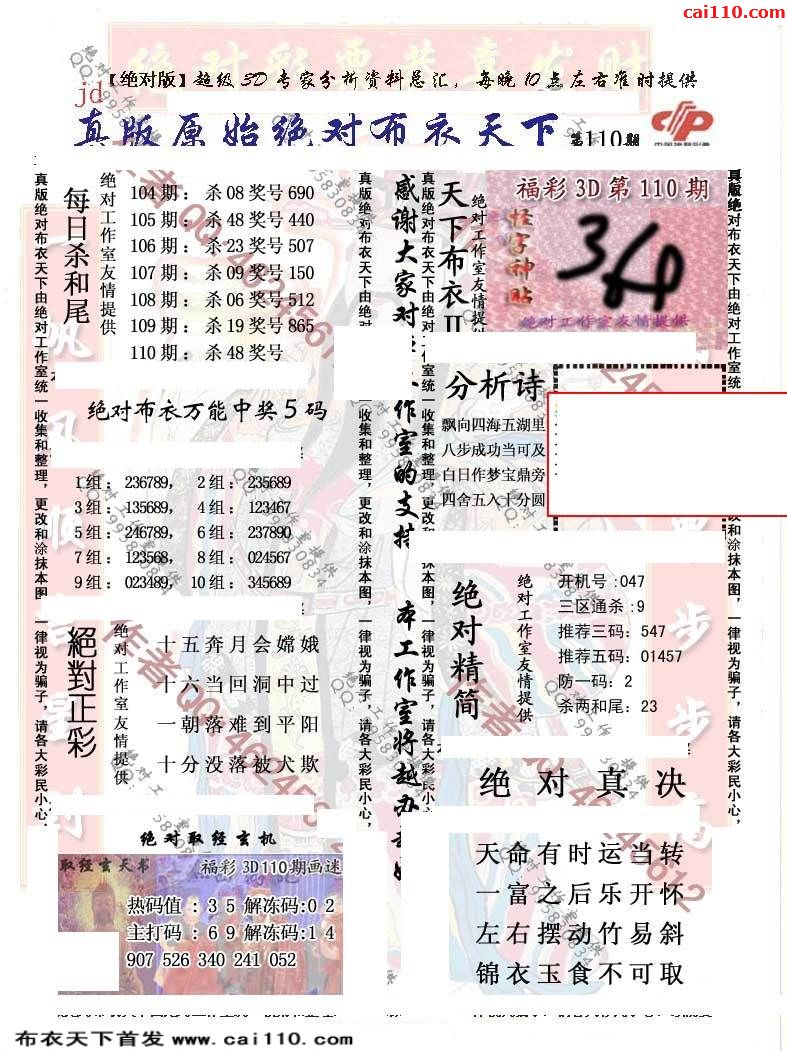 cai110.com
【绝对版】超级3D专家分析资料总汇,每晚10点左右准时提供
jd
真版原始绝对布衣天下
第110期
每日杀和尾
绝对工作室友情提供
104期:杀08奖号690
105期:杀48奖号440
106期:杀23奖号507
107期:杀09奖号150
108期:杀06奖号512
109期:杀19奖号865
110期:杀48奖号
绝对布衣万能中奖5码
1组:236789, 2组:235689
3组:135689, 4组:123467
5组:246789, 6组:237890
7组:123568, 8组:024567
9组:023489, 10组:345689
絕對正彩
绝对工作室友情提供
十五奔月会嫦娥
十六当回洞中过
一朝落难到平阳
十分没落被犬欺
绝对取经玄机
取经玄天书
福彩3D110期画迷
热码值:35解冻码:02
主打码:69解冻码:14
907 526 340 241 052
真版绝对布衣天下由绝对工作室统一收集和整理,更改和涂抹本图,一律视为骗子,请各大彩民小心,
感谢大家对
作室的支持
本工作室将越办
天下布衣II
绝对工作室友情提供
福彩3D第110期
怪字神贴
绝对工作室友情提供
分析诗
飘向四海五湖里
八步成功当可及
白日作梦宝鼎旁
四舍五入十分圆
绝对精简
绝对工作室友情提供
开机号:047
三区通杀:9
推荐三码:547
推荐五码:01457
防一码:2
杀两和尾:23
绝对真决
天命有时运当转
一富之后乐开怀
左右摆动竹易斜
锦衣玉食不可取
布衣天下首发 www.cai110.com